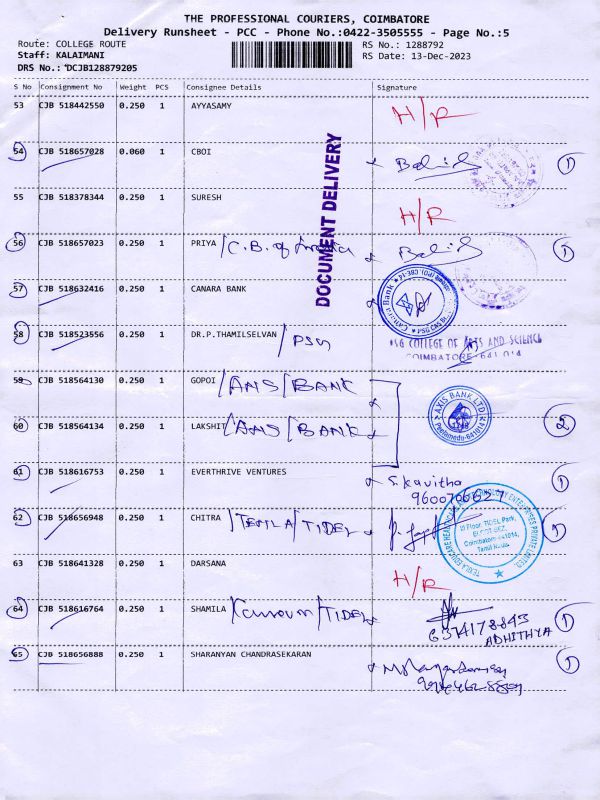 THE PROFESSIONAL COURIERS, COIMBATORE
Delivery Runsheet - PCC - Phone No.:0422-3505555 - Page No.:5
Route: COLLEGE ROUTE RS No.: 1288792
Staff: KALAIMANI RS Date: 13-Dec-2023
DRS No.: *DCJB128879205
S No Consignment No Weight PCS Consignee Details Signature
53 CJB 518442550 0.250 1 AYYASAMY H/R
54 CJB 518657028 0.060 1 CBOI 1
DOCUMENT DELIVERY
55 CJB 518378344 0.250 1 SURESH H/R
56 CJB 518657023 0.250 1 PRIYA / C.B. of India 1
57 CJB 518632416 0.250 1 CANARA BANK
58 CJB 518523556 0.250 1 DR.P.THAMILSELVAN / PSG
PSG COLLEGE OF ARTS AND SCIENCE
COIMBATORE-641 014
59 CJB 518564130 0.250 1 GOPOI / BANK
AXIS BANK LTD
60 CJB 518564134 0.250 1 LAKSHIT / BANK 2
61 CJB 518616753 0.250 1 EVERTHRIVE VENTURES S. Kavitha 1
62 CJB 518656948 0.250 1 CHITRA / TEXILA / TIDEL 1
Floor, TIDEL Park,
ELCOT SEZ,
Coimbatore-641014,
Tamil Nadu.
63 CJB 518641328 0.250 1 DARSANA H/R
64 CJB 518616764 0.250 1 SHAMILA / TIDEL 1
ADHITHYA
65 CJB 518656888 0.250 1 SHARANYAN CHANDRASEKARAN 1